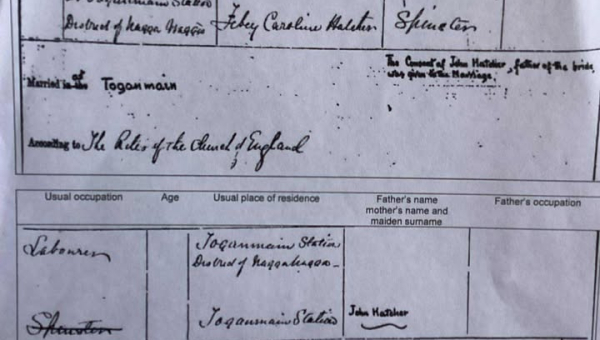 Toganmain Station
District of Wagga Wagga
Febey Caroline Hatcher
Spinster
The Consent of John Hatcher, father of the bride,
was given to the Marriage.
Married at Toganmain
According to The Rites of the Church of England
Usual occupation
Age
Usual place of residence
Father's name
mother's name and
maiden surname
Father's occupation
Labourer
Toganmain Station
District of Wagga Wagga
Spinster
Toganmain Station
John Hatcher